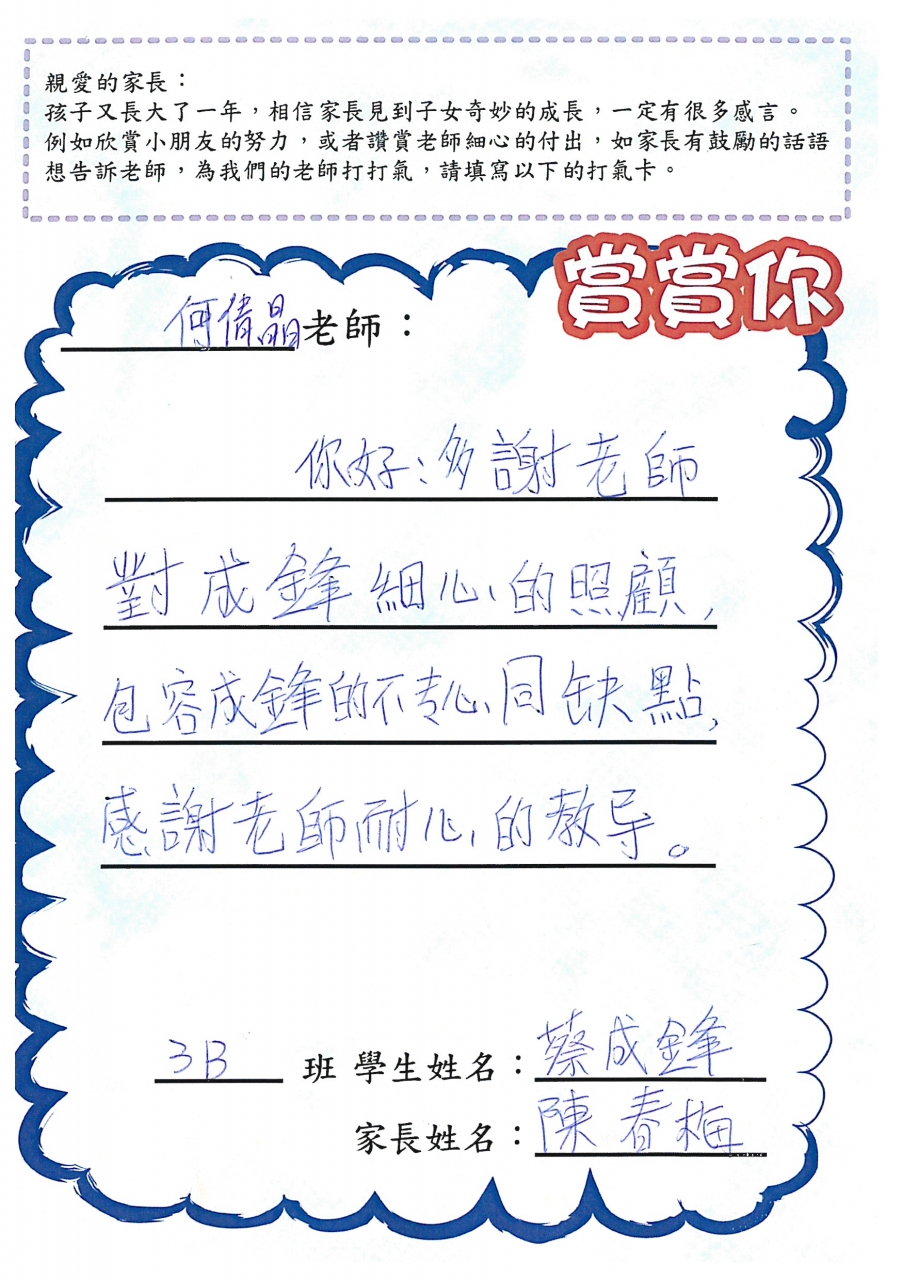 親愛的家長：
孩子又長大了一年，相信家長見到子女奇妙的成長，一定有很多感言。
例如欣賞小朋友的努力，或者讚賞老師細心的付出，如家長有鼓勵的話語
想告訴老師，為我們的老師打打氣，請填寫以下的打氣卡。
賞賞你
何倩晶老師：
你好：多謝老師
對成鋒細心的照顧，
包容成鋒的不专心同缺點，
感謝老師耐心的教导。
3B 班 學生姓名：蔡成鋒
家長姓名：陳春梅